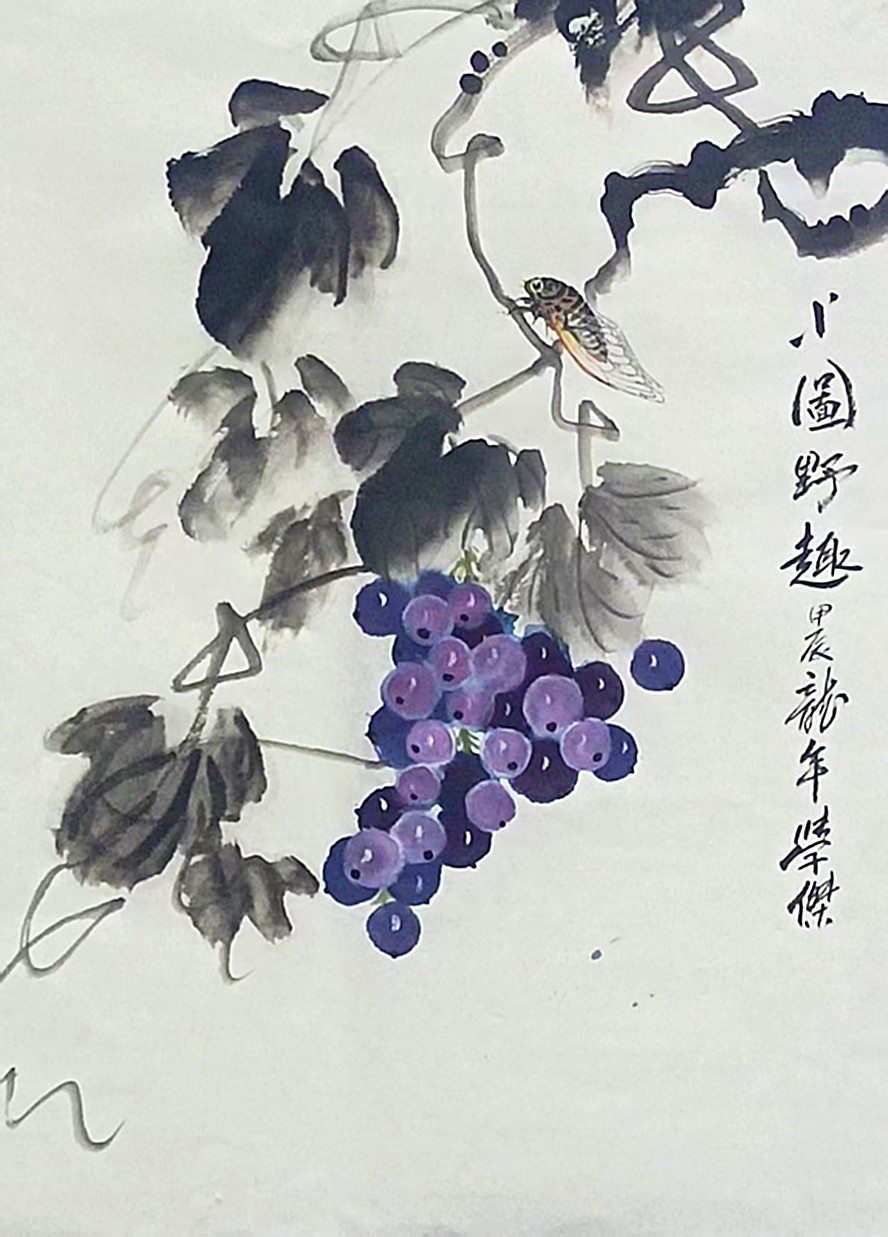 小圖野趣甲辰龍年傑